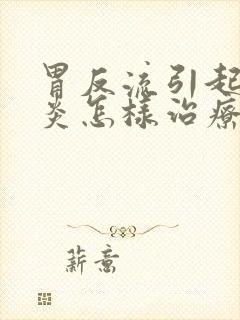 胃反流引起
炎怎样治療
薪意